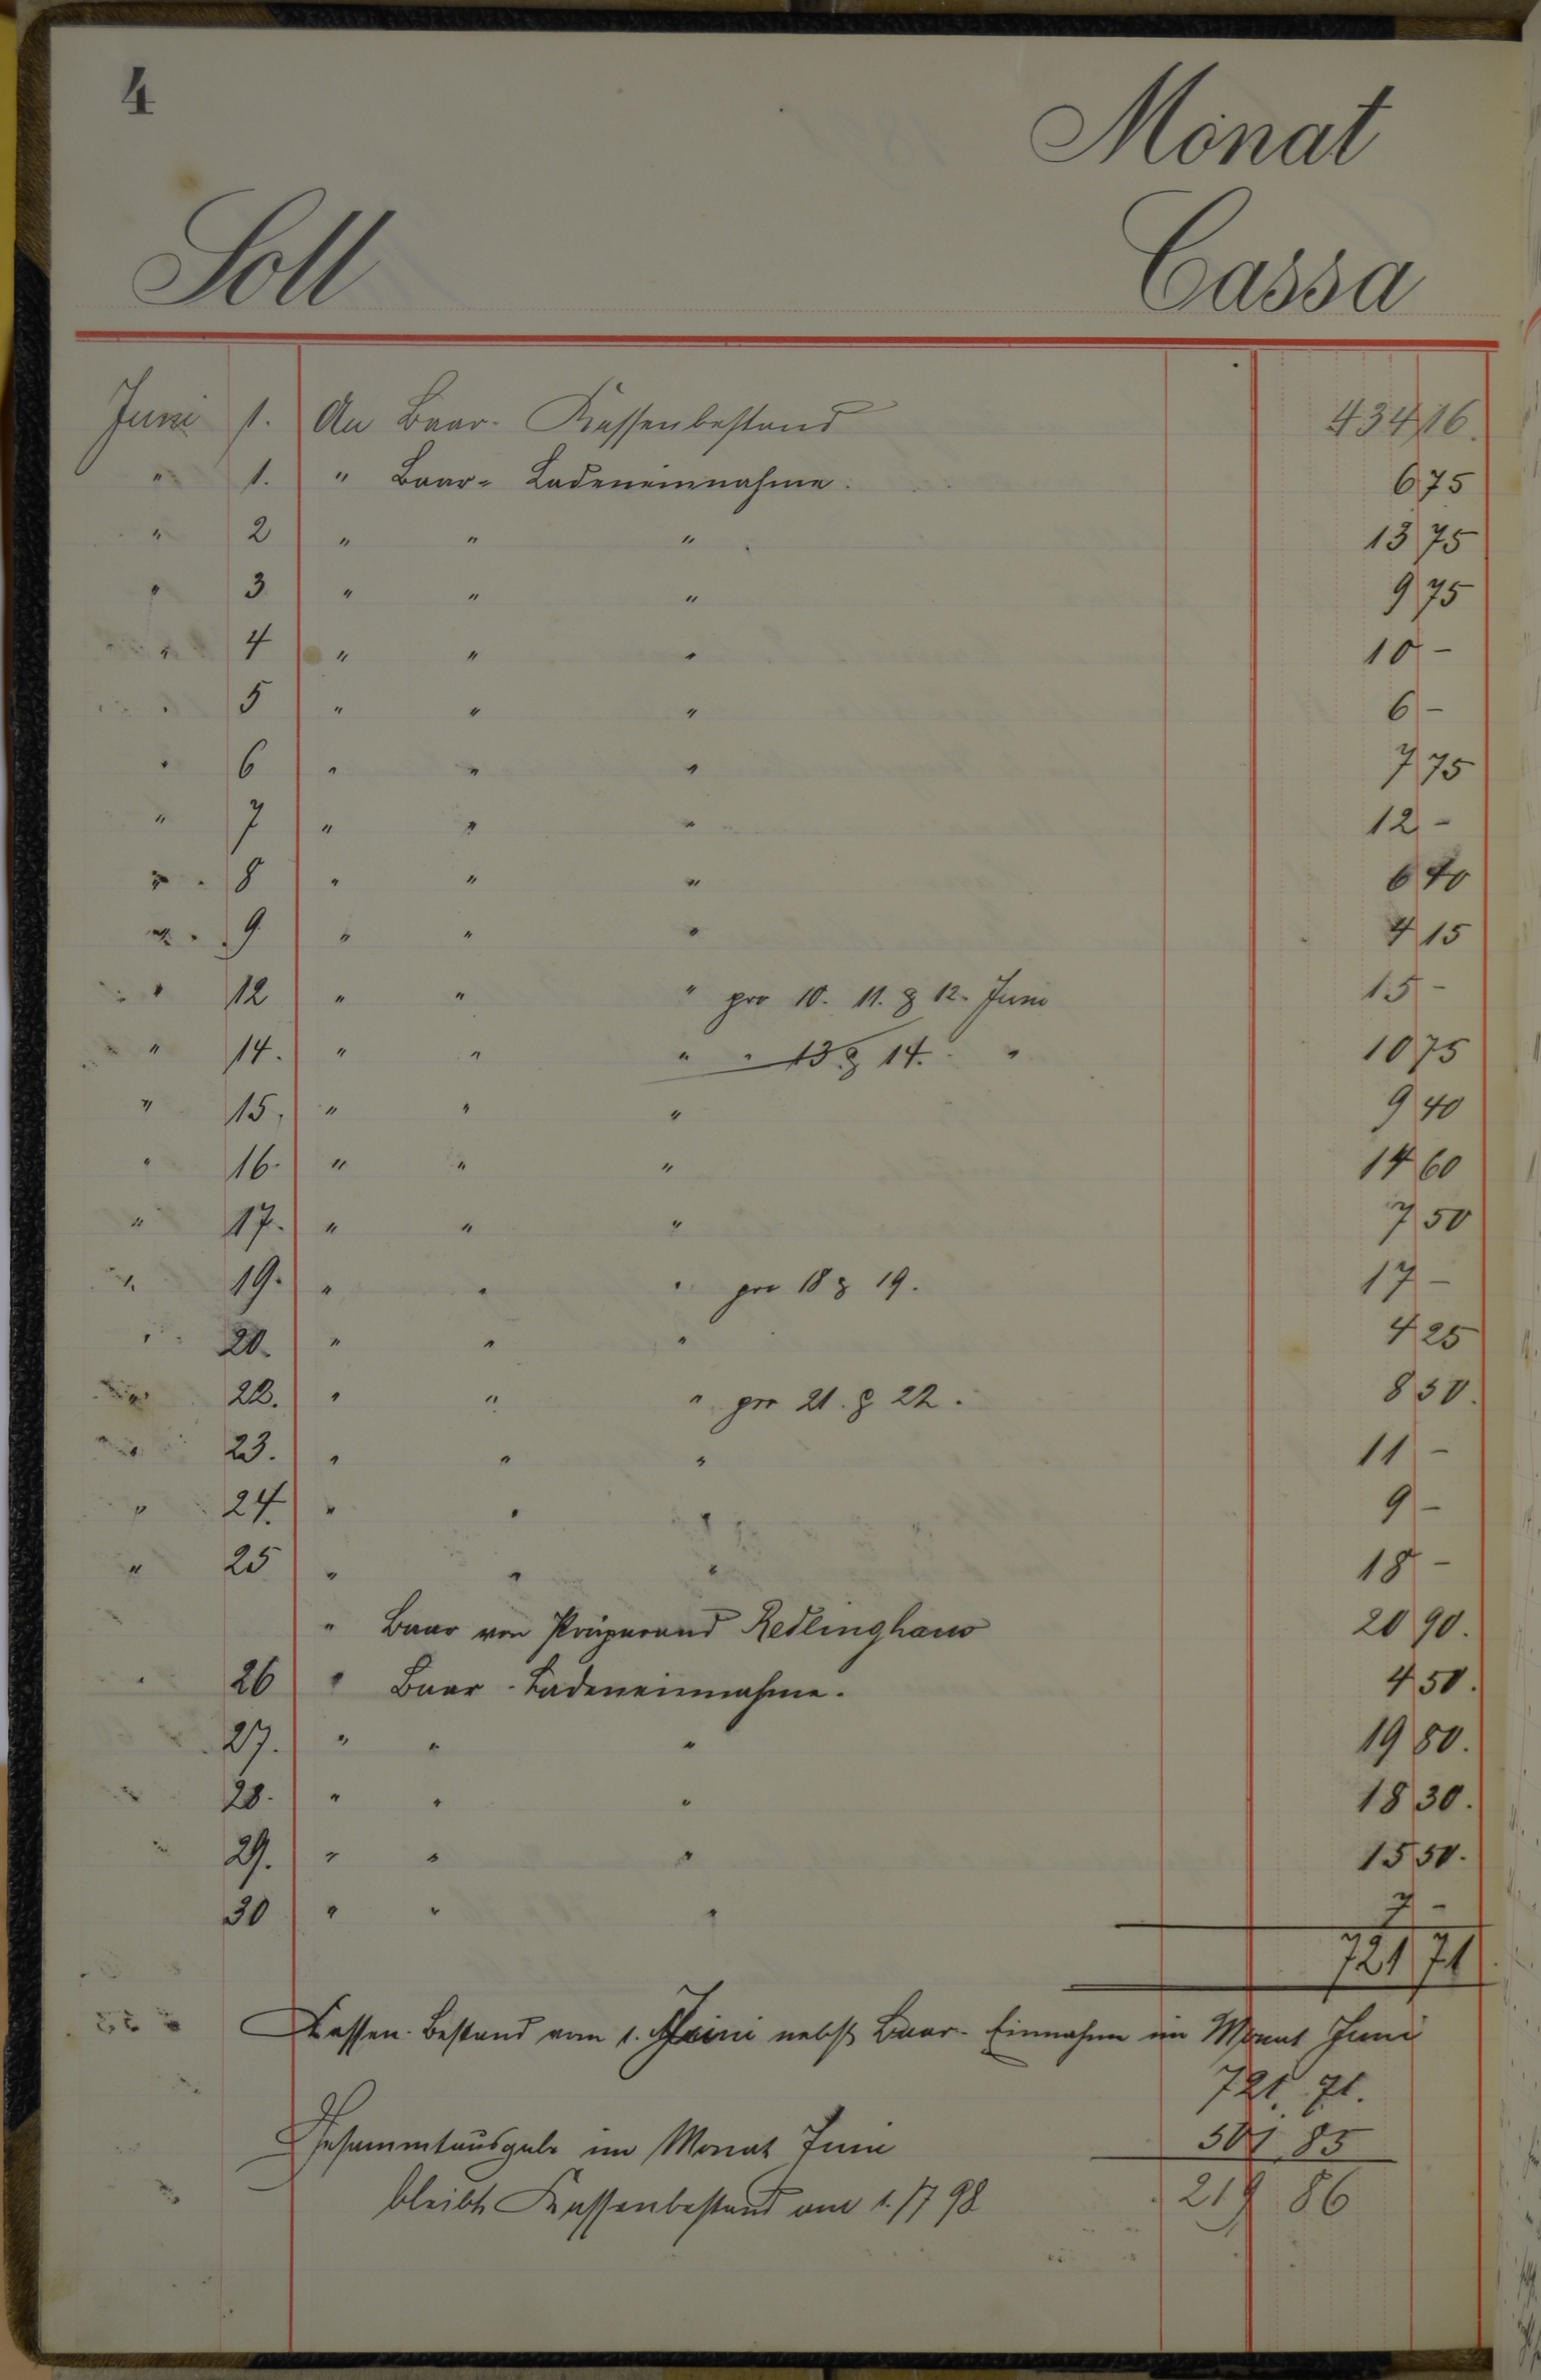 4
Monat
Soll Cassa
Juni 1. An Baar-Kassenbestand 434 16.
" 1. " Baar-Ladeneinnahme. 6 75
" 2 " " " 13 75
" 3 " " " 9 75
" 4 " " " 10 -
" 5 " " " 6 -
" 6 " " " 7 75
" 7 " " " 12 -
" 8 " " " 6 40
" 9 " " " 4 15
" 12 " " " pro 10. 11. & 12. Juni 15 -
" 14. " " " " 13 & 14. " 10 75
" 15. " " " 9 40
" 16. " " " 14 60
" 17. " " " 7 50
" 19. " " " pro 18 & 19. 17 -
" 20. " " " 4 25
" 22. " " " pro 21. & 22. 8 50.
" 23. " " " 11 -
" 24. " " " 9 -
" 25 " " " 18 -
" Baar von Präparand Redlinghaus 20 90.
" 26 " Baar-Ladeneinnahme. 4 50.
27. " " " 19 80.
" 28. " " " 18 30.
" 29. " " " 15 50.
30 " " " 7 -
721 71
Kassen-Bestand vom 1. Juni nebst Baar-Einnahme im Monat Juni
721. 71.
Gesammtausgabe im Monat Juni 501 85
bleibt Kassenbestand am 1./7 98 219 86